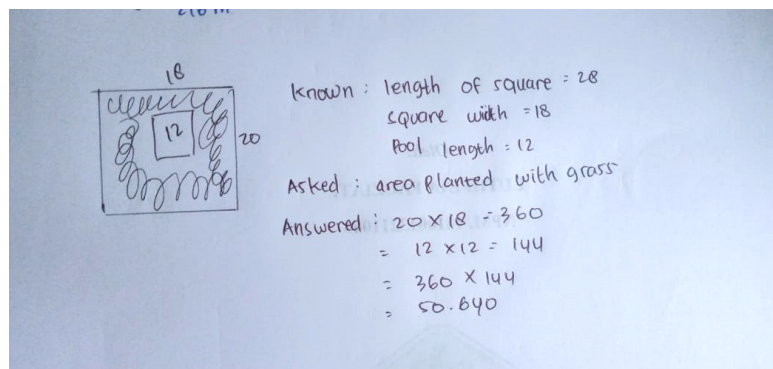 18
12
20
Known : length of square = 28
square width = 18
Pool length = 12
Asked : area planted with grass
Answered : 20 x 18 = 360
= 12 x 12 = 144
= 360 x 144
= 50.640